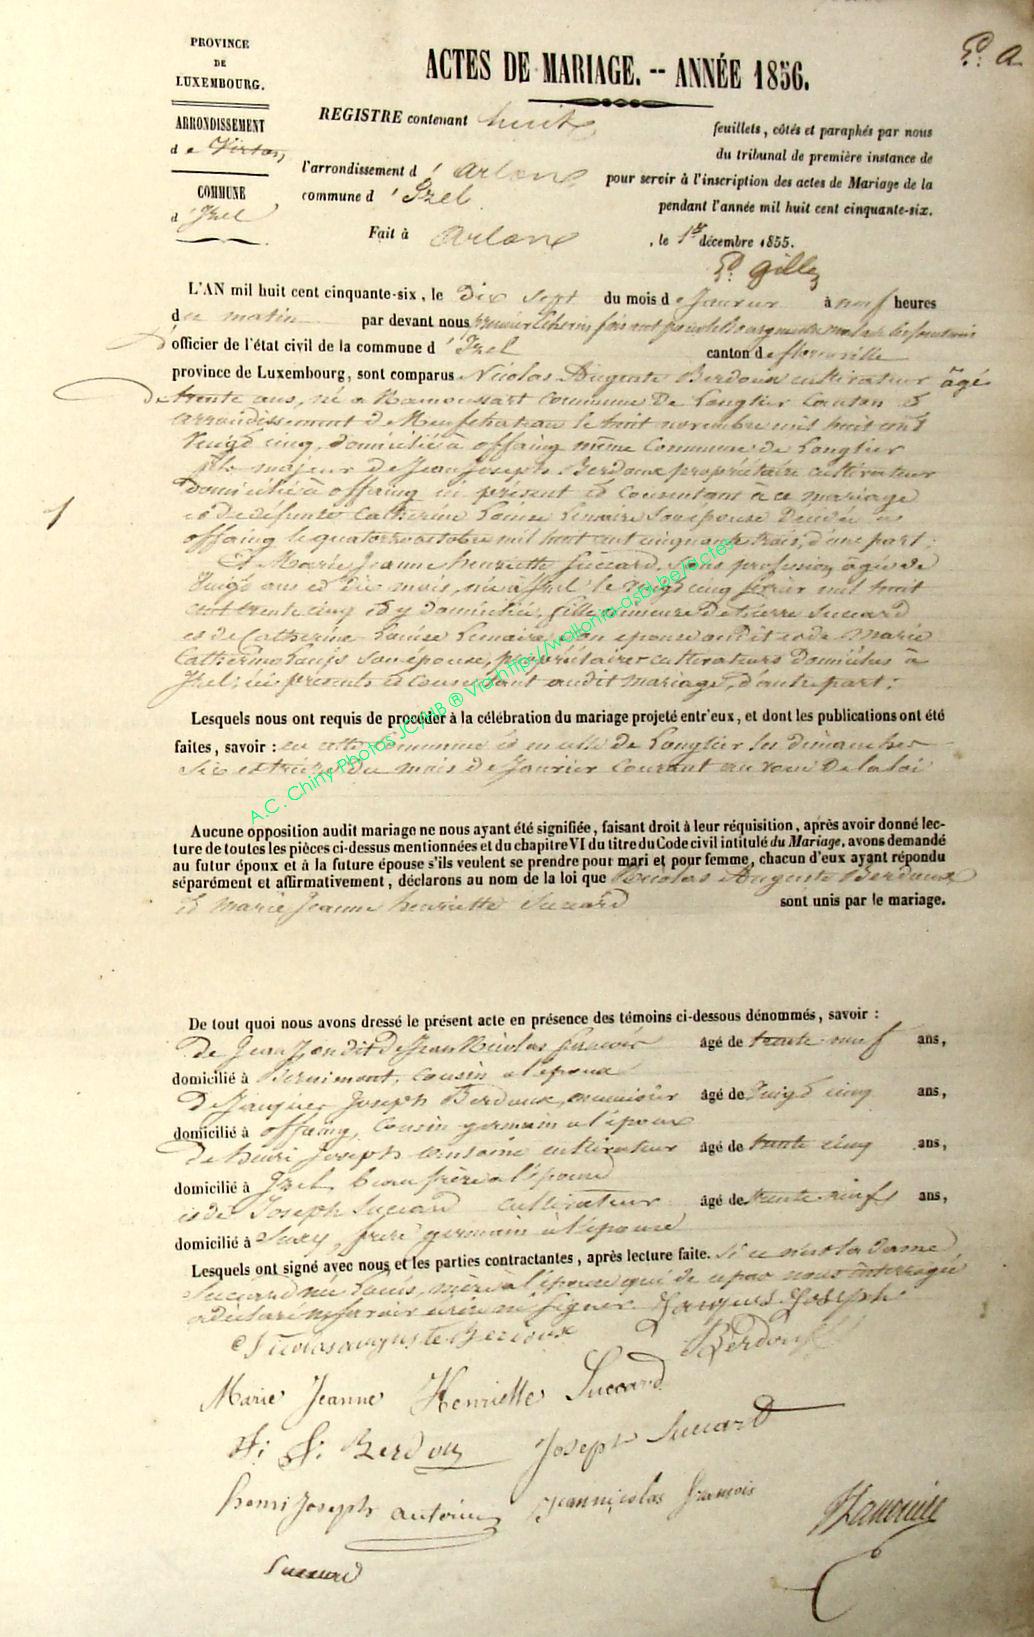 PROVINCE
DE
LUXEMBOURG.
ARRONDISSEMENT
d e Virton,
COMMUNE
d' Izel
ACTES DE MARIAGE. -- ANNÉE 1856.
P. A
REGISTRE contenant huit
feuillets, côtés et paraphés par nous
du tribunal de première instance de
l'arrondissement d' Arlon
pour servir à l'inscription des actes de Mariage de la
commune d' Izel
pendant l'année mil huit cent cinquante-six.
Fait à Arlon, le 1er décembre 1855.
L'AN mil huit cent cinquante-six, le dix sept du mois de Janvier à neuf heures
du matin par devant nous premier Echevin
d'officier de l'état civil de la commune d' Izel canton de florenville
province de Luxembourg, sont comparus Nicolas Auguste Berdoux cultivateur âgé
de trente ans, né à Hamoussart Commune de Longlier Canton &
arrondissement de Neufchateau le huit novembre mil huit cent
vingt cinq, domicilié à offaing même Commune de Longlier
fils majeur de Jean Joseph Berdoux propriétaire cultivateur
domicilié à offaing ici présent & consentant à ce mariage
et de défunte Catherine Louise Lemaire son épouse décédée à
offaing le quatorze octobre mil huit cent cinquante trois, d'une part;
Et Marie Jeanne henriette Succard, sans profession, âgée de
vingt ans et dix mois, née à Izel le vingt cinq février mil huit
cent trente cinq & y domiciliée, fille mineure de Pierre Succard
et de Catherine Louise Lemaire son épouse audit et de Marie
Catherine Louis son épouse, propriétaires cultivateurs domiciliés à
Izel; ici présents & consentant audit mariage, d'autre part;
Lesquels nous ont requis de procéder à la célébration du mariage projeté entr'eux, et dont les publications ont été
faites, savoir: en cette commune & en celle de Longlier les dimanches
six et treize du mois de Janvier courant au voeu de la loi
Aucune opposition audit mariage ne nous ayant été signifiée, faisant droit à leur réquisition, après avoir donné lec-
ture de toutes les pièces ci-dessus mentionnées et du chapitre VI du titre du Code civil intitulé du Mariage, avons demandé
au futur époux et à la future épouse s'ils veulent se prendre pour mari et pour femme, chacun d'eux ayant répondu
séparément et affirmativement, déclarons au nom de la loi que Nicolas Auguste Berdoux
& Marie Jeanne henriette Succard sont unis par le mariage.
De tout quoi nous avons dressé le présent acte en présence des témoins ci-dessous dénommés, savoir:
de Jean dit de Jean Nicolas âgé de trente neuf ans,
domicilié à Bernimont, cousin à l'époux
de Jacques Joseph Berdoux, menuisier âgé de vingt cinq ans,
domicilié à offaing, Cousin germain à l'époux
de henri Joseph Antoine cultivateur âgé de trente cinq ans,
domicilié à Izel, beau frère à l'épouse
et de Joseph Succard cultivateur âgé de trente neuf ans,
domicilié à Suxy, frère germain à l'épouse
Lesquels ont signé avec nous et les parties contractantes, après lecture faite. Si ce n'est la dame
Succard née Louis, mère à l'épouse qui de ce par nous interrogée
a déclaré ne savoir écrire ni signer. Jacques Joseph
Nicolas auguste Berdoux Berdoux
Marie Jeanne Henriette Succard
J. J. Berdoux Joseph Succard
henri Joseph antoine Jean nicolas
Succard
A.C. Chiny Photos JC/NB ® Via http://wallonia-asbl.be/actes